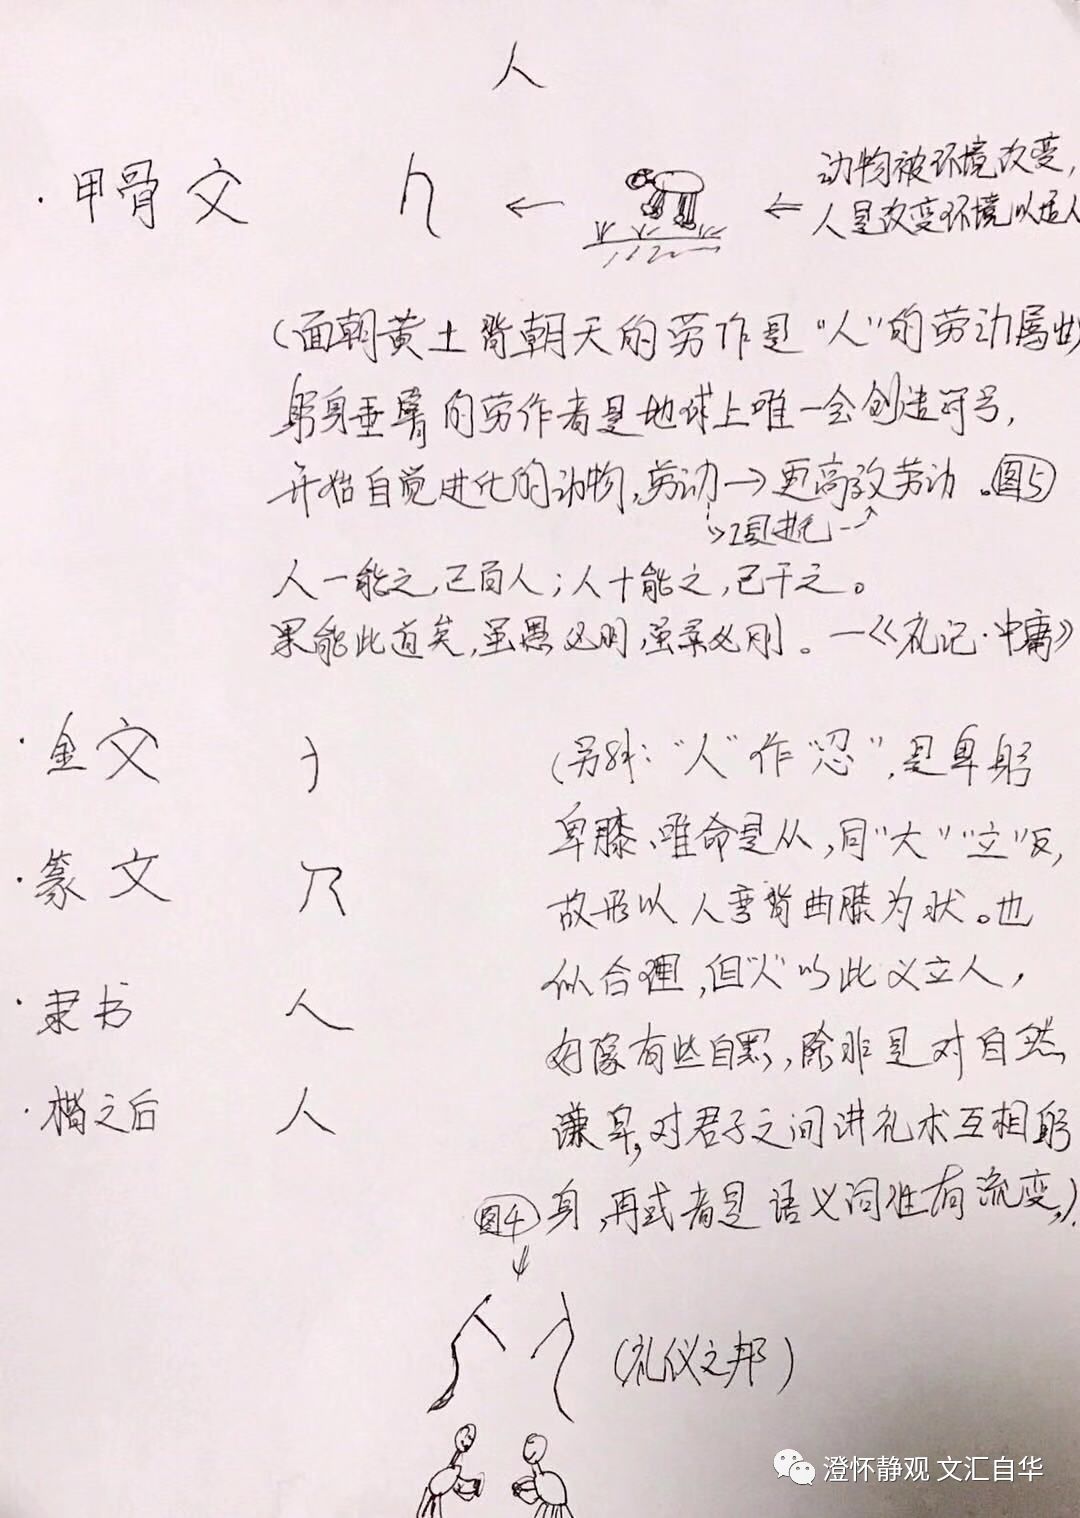 人
·甲骨文
动物被环境改变,
人是改变环境以适人
(面朝黄土背朝天的劳作是“人”的劳动属
躬身垂臂的劳作者是地球上唯一会创造符号,
开始自觉进化的动物,劳动→更高效劳动。图5
工具进化
人一能之,己百人;人十能之,己千之。
果能此道矣,虽愚必明,虽柔必刚。—《礼记·中庸》
·金文
(另料:“人”作“忍”,是卑躬
卑膝、唯命是从,同“大”“立”反,
·篆文
故形以人弯背曲膝为状。也
似合理,但“人”以此义立人,
·隶书 人
好像有些自黑,除非是对自然
·楷之后 人
谦卑,对君子之间讲礼术互相躬
图4
身,再或者是语义词性有流变,).
(礼仪之邦)
澄怀静观 文汇自华